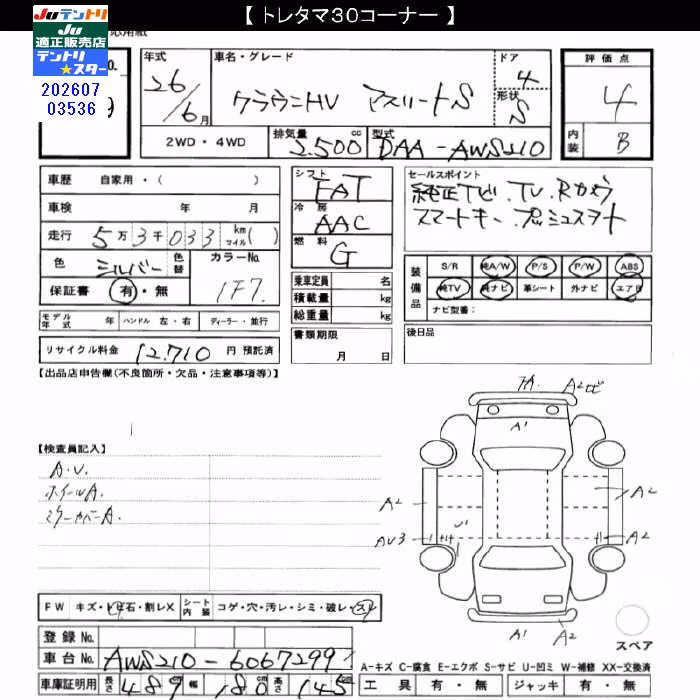 【 トレタマ30コーナー 】
Juテントリ
JU
適正販売店
テントリ
★スター
応用紙
No.
202607
03536
9
年式 26/6月
車名・グレード クラウンHV アスリートS
ドア 4
形状 S
評価点 4
内装 B
2WD・4WD
排気量 2.500cc
型式 DAA-AWS210
車歴 自家用・( )
車検 年 月
走行 5万3千033 km マイル( )
色 シルバー 色替 カラーNo. 1F7
保証書 有・無
シフト FAT
冷房 AAC
燃料 G
乗車定員 名
積載量 kg
総重量 kg
セールスポイント
純正ナビ.TV.Rカメラ
スマートキー.プッシュスタート
装備品
S/R 純A/W P/S P/W ABS
純TV 純ナビ 革シート 外ナビ エアB
ナビ型番:
モデル年式 年 ハンドル 左・右 ディーラー・並行
書類期限 月 日
後日品
リサイクル料金 12.710 円 預託済
【出品店申告欄(不良箇所・欠品・注意事項等)】
【検査員記入】
A.U.
ホイールA.
ミラーカバーA.
A2
A1
A2
A2
AU3
A2
U1
A1
A2
スペア
FW キズ・飛石・割レX
シート内装 コゲ・穴・汚レ・シミ・破レ・スレ
登録No.
車台No. AWS210-6067299
車庫証明用 長さ 489 幅 180cm 高さ 145
A-キズ C-腐食 E-エクボ S-サビ U-凹ミ W-補修 XX-交換済
工具 有・無 ジャッキ 有・無